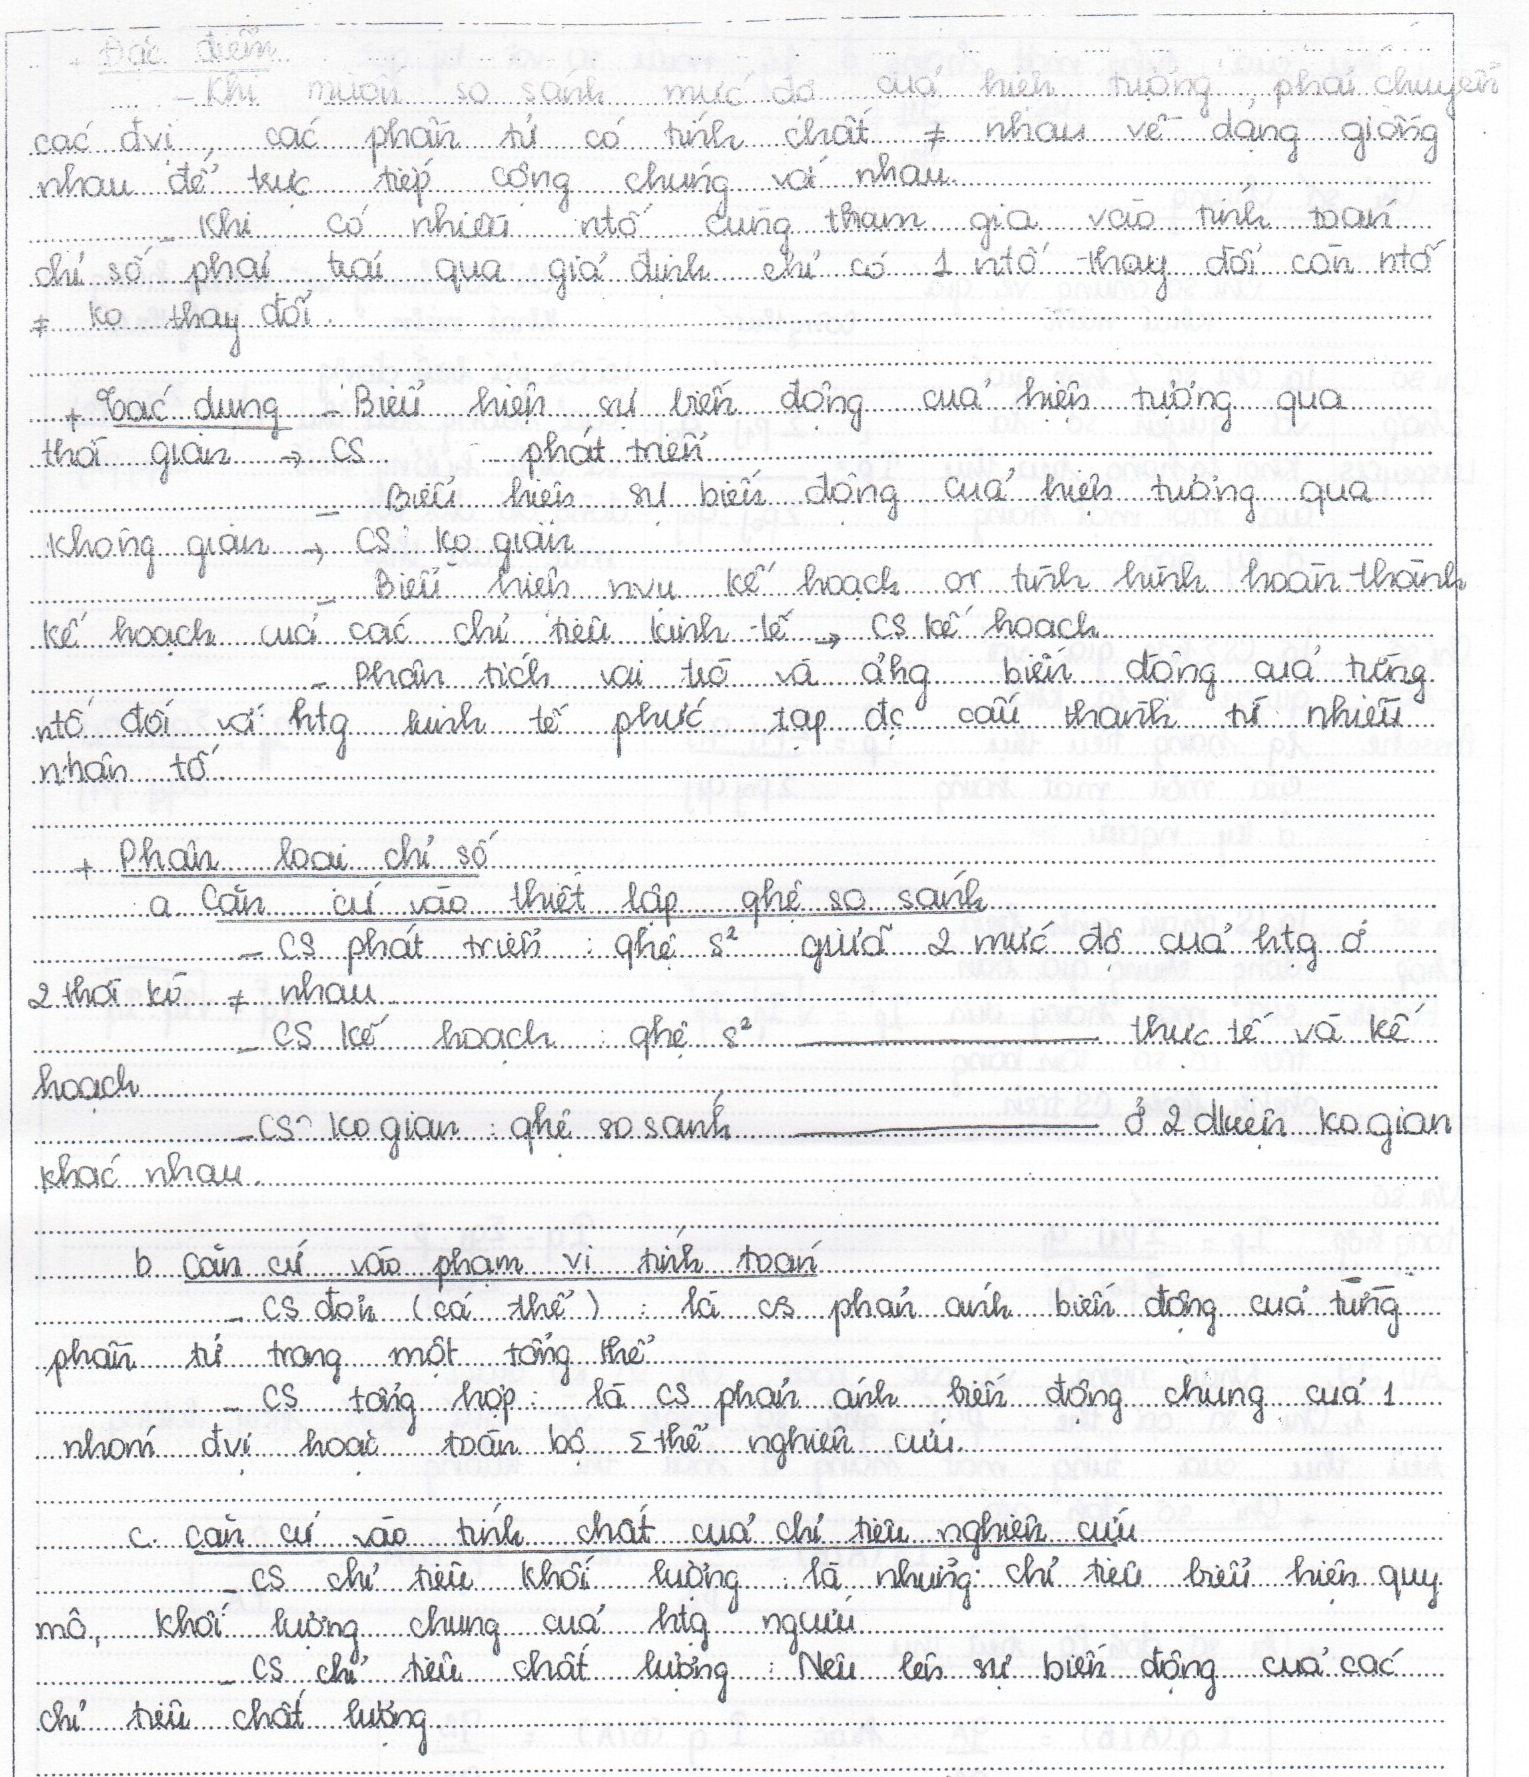 + Đặc điểm
- Khi muốn so sánh mức độ của hiện tượng phải chuyển
các đvi, các phần tử có tính chất ≠ nhau về dạng giống
nhau để trực tiếp cộng chúng với nhau.
- Khi có nhiều ntố cùng tham gia vào tính toán
chỉ số phải trải qua giả định chỉ có 1 ntố thay đổi còn ntố
≠ ko thay đổi.
+ Tác dụng - Biểu hiện sự biến động của hiện tượng qua
thời gian → CS phát triển
- Biểu hiện sự biến động của hiện tượng qua
không gian → CS ko gian
- Biểu hiện nvụ kế hoạch or tình hình hoàn thành
kế hoạch của các chỉ tiêu kinh tế → CS kế hoạch
- Phân tích vai trò và ảhg biến động của từng
ntố đối với htg kinh tế phức tạp đc cấu thành từ nhiều
nhân tố
+ Phân loại chỉ số
a. Căn cứ vào thiết lập qhệ so sánh
- CS phát triển : qhệ s² giữa 2 mức độ của htg ở
2 thời kỳ ≠ nhau
- CS kế hoạch : qhệ s² ——— thực tế và kế
hoạch
- CS ko gian : qhệ so sánh ——— ở 2 đkiện ko gian
khác nhau.
b. Căn cứ vào phạm vi tính toán
- CS đơn (cá thể) : là cs phản ánh biến động của từng
phần tử trong một tổng thể
- CS tổng hợp : là CS phản ánh biến động chung của 1
nhóm đvị hoặc toàn bộ Σ thể nghiên cứu.
c. Căn cứ vào tính chất của chỉ tiêu nghiên cứu
- CS chỉ tiêu khối lượng : là những chỉ tiêu biểu hiện quy
mô, khối lượng chung của htg ngcứu
- CS chỉ tiêu chất lượng : Nêu lên sự biến động của các
chỉ tiêu chất lượng